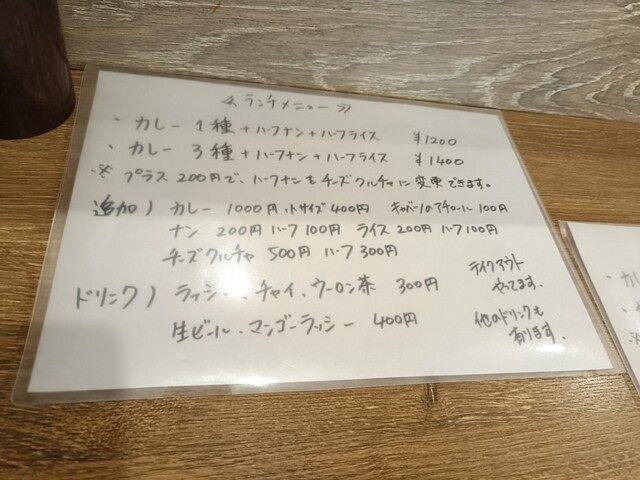 《ランチメニュー》
・カレー1種+ハーフナン+ハーフライス ¥1200
・カレー3種+ハーフナン+ハーフライス ¥1400
※ プラス200円で、ハーフナンをチーズクルチャに変更できます。
追加) カレー 1000円 小サイズ 400円 キャベツのアチャール 100円
ナン 200円 ハーフ 100円 ライス 200円 ハーフ 100円
チーズクルチャ 500円 ハーフ 300円
ドリンク) ラッシー、チャイ、ウーロン茶 300円
生ビール、マンゴーラッシー 400円
テイクアウト
やってます。
他のドリンクも
有ります。
・カレ
※